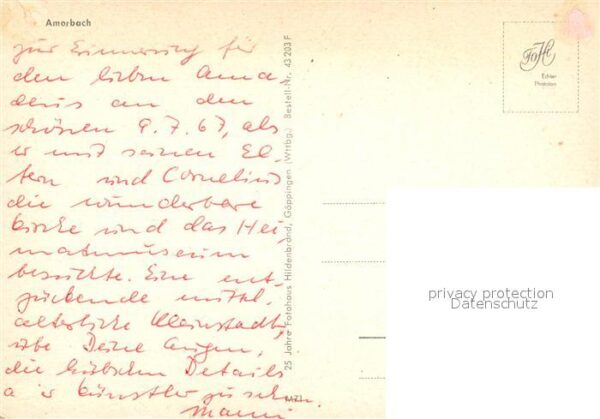 Amorbach
zur Erinnerung für
den lieben Ama-
deus an den
schönen 9.7.67, als
er mit seinen El-
tern und Cornelius
die wunderbare
Kirche und das Hei-
matmuseum
besuchte. Eine ent-
zückende mittel-
alterliche Kleinstadt,
übe Deine Augen,
die hübschen Details
zu sehen.
25 Jahre Fotohaus Hildenbrand, Göppingen (Wttbg.) Bestell-Nr. 43 203 F
FoHi
Echter
Phototon
privacy protection
Datenschutz